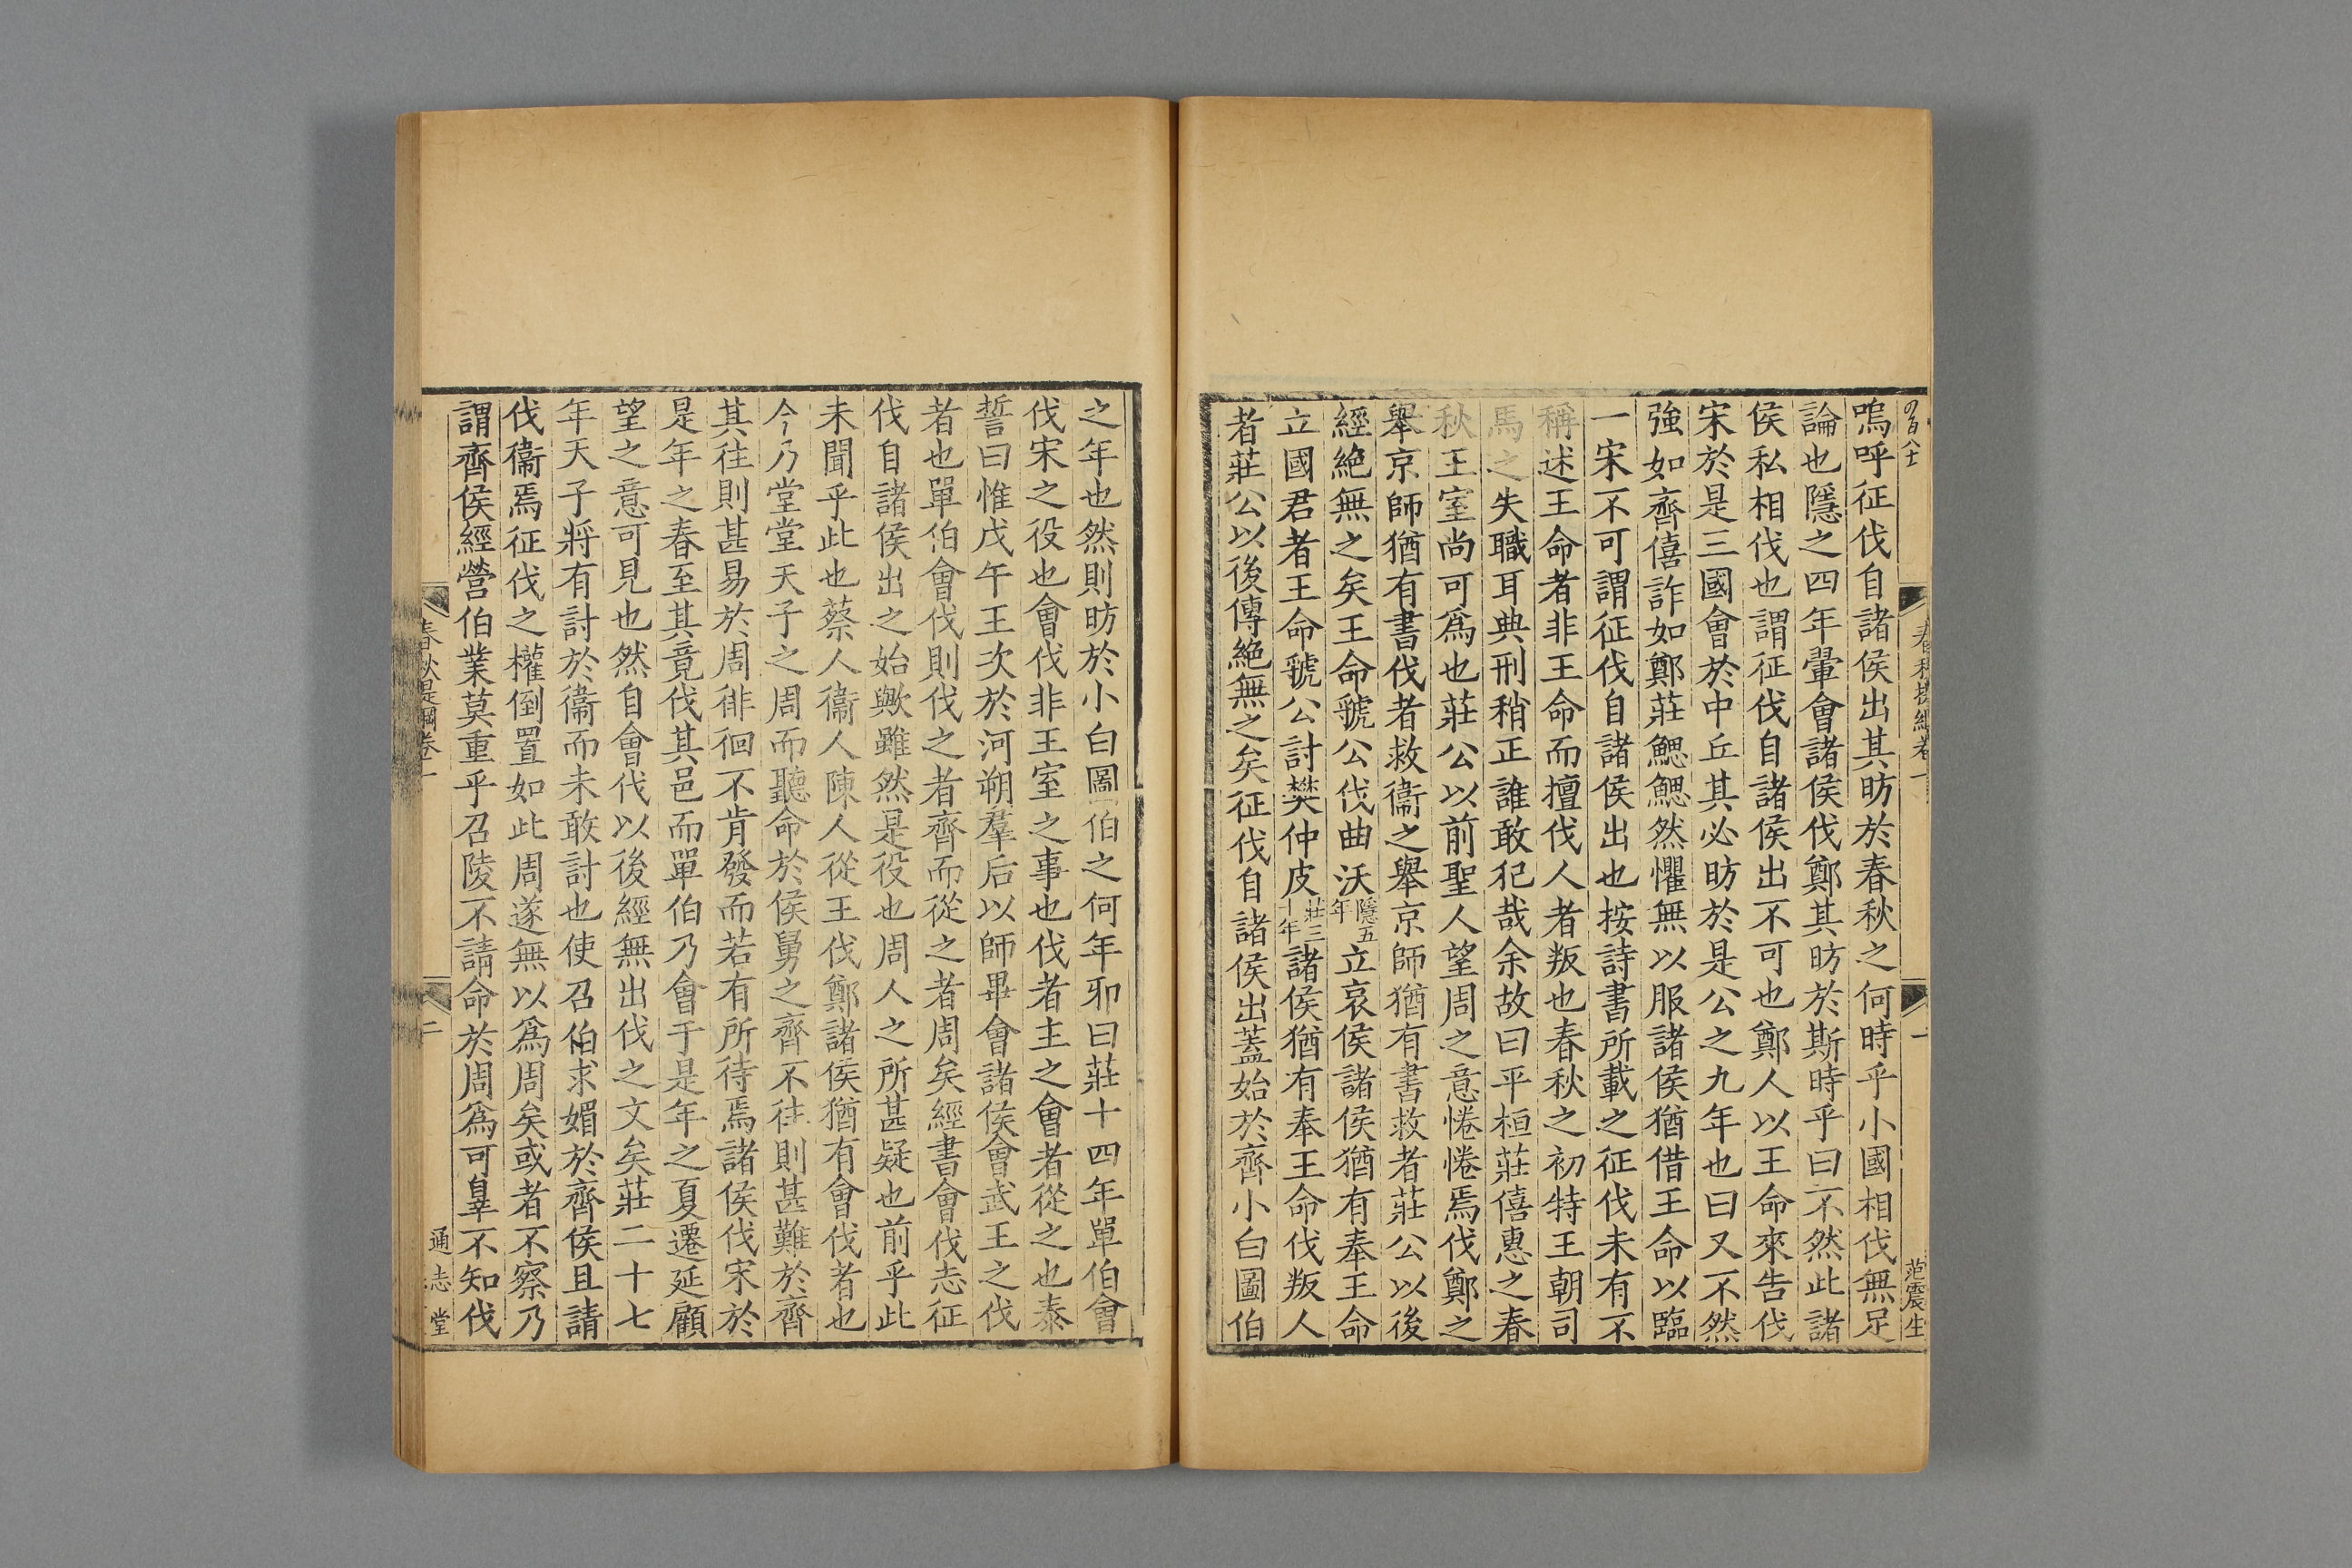 春秋提綱卷一
一
范震生
嗚呼征伐自諸侯出其昉於春秋之何時乎小國相伐無足
論也隱之四年翬會諸侯伐鄭其昉於斯時乎曰不然此諸
侯私相伐也謂征伐自諸侯出不可也鄭人以王命來告伐
宋於是三國會於中丘其必昉於是公之九年也曰又不然
強如齊僖詐如鄭莊鰓鰓然懼無以服諸侯猶借王命以臨
一宋不可謂征伐自諸侯出也按詩書所載之征伐未有不
稱述王命者非王命而擅伐人者叛也春秋之初特王朝司
馬之失職耳典刑稍正誰敢犯哉余故曰平桓莊僖惠之春
秋王室尚可為也莊公以前聖人望周之意惓惓焉伐鄭之
舉京師猶有書伐者救衞之舉京師猶有書救者莊公以後
經絶無之矣王命虢公伐曲沃隱五年立哀侯諸侯猶有奉王命
立國君者王命虢公討樊仲皮莊三十年諸侯猶有奉王命伐叛人
者莊公以後傳絶無之矣征伐自諸侯出蓋始於齊小白圖伯
之年也然則昉於小白圖伯之何年邪曰莊十四年單伯會
伐宋之役也會伐非王室之事也伐者主之會者從之也泰
誓曰惟戊午王次於河朔羣后以師畢會諸侯會武王之伐
者也單伯會伐則伐之者齊而從之者周矣經書會伐志征
伐自諸侯出之始歟雖然是役也周人之所甚疑也前乎此
未聞乎此也蔡人衞人陳人從王伐鄭諸侯猶有會伐者也
今乃堂堂天子之周而聽命於侯舅之齊不往則甚難於齊
其往則甚易於周徘徊不肯發而若有所待焉諸侯伐宋於
是年之春至其竟伐其邑而單伯乃會于是年之夏遷延顧
望之意可見也然自會伐以後經無出伐之文矣莊二十七
年天子將有討於衞而未敢討也使召伯求媚於齊侯且請
伐衞焉征伐之權倒置如此周遂無以為周矣或者不察乃
謂齊侯經營伯業莫重乎召陵不請命於周為可辠不知伐
春秋提綱卷一
二
通志堂